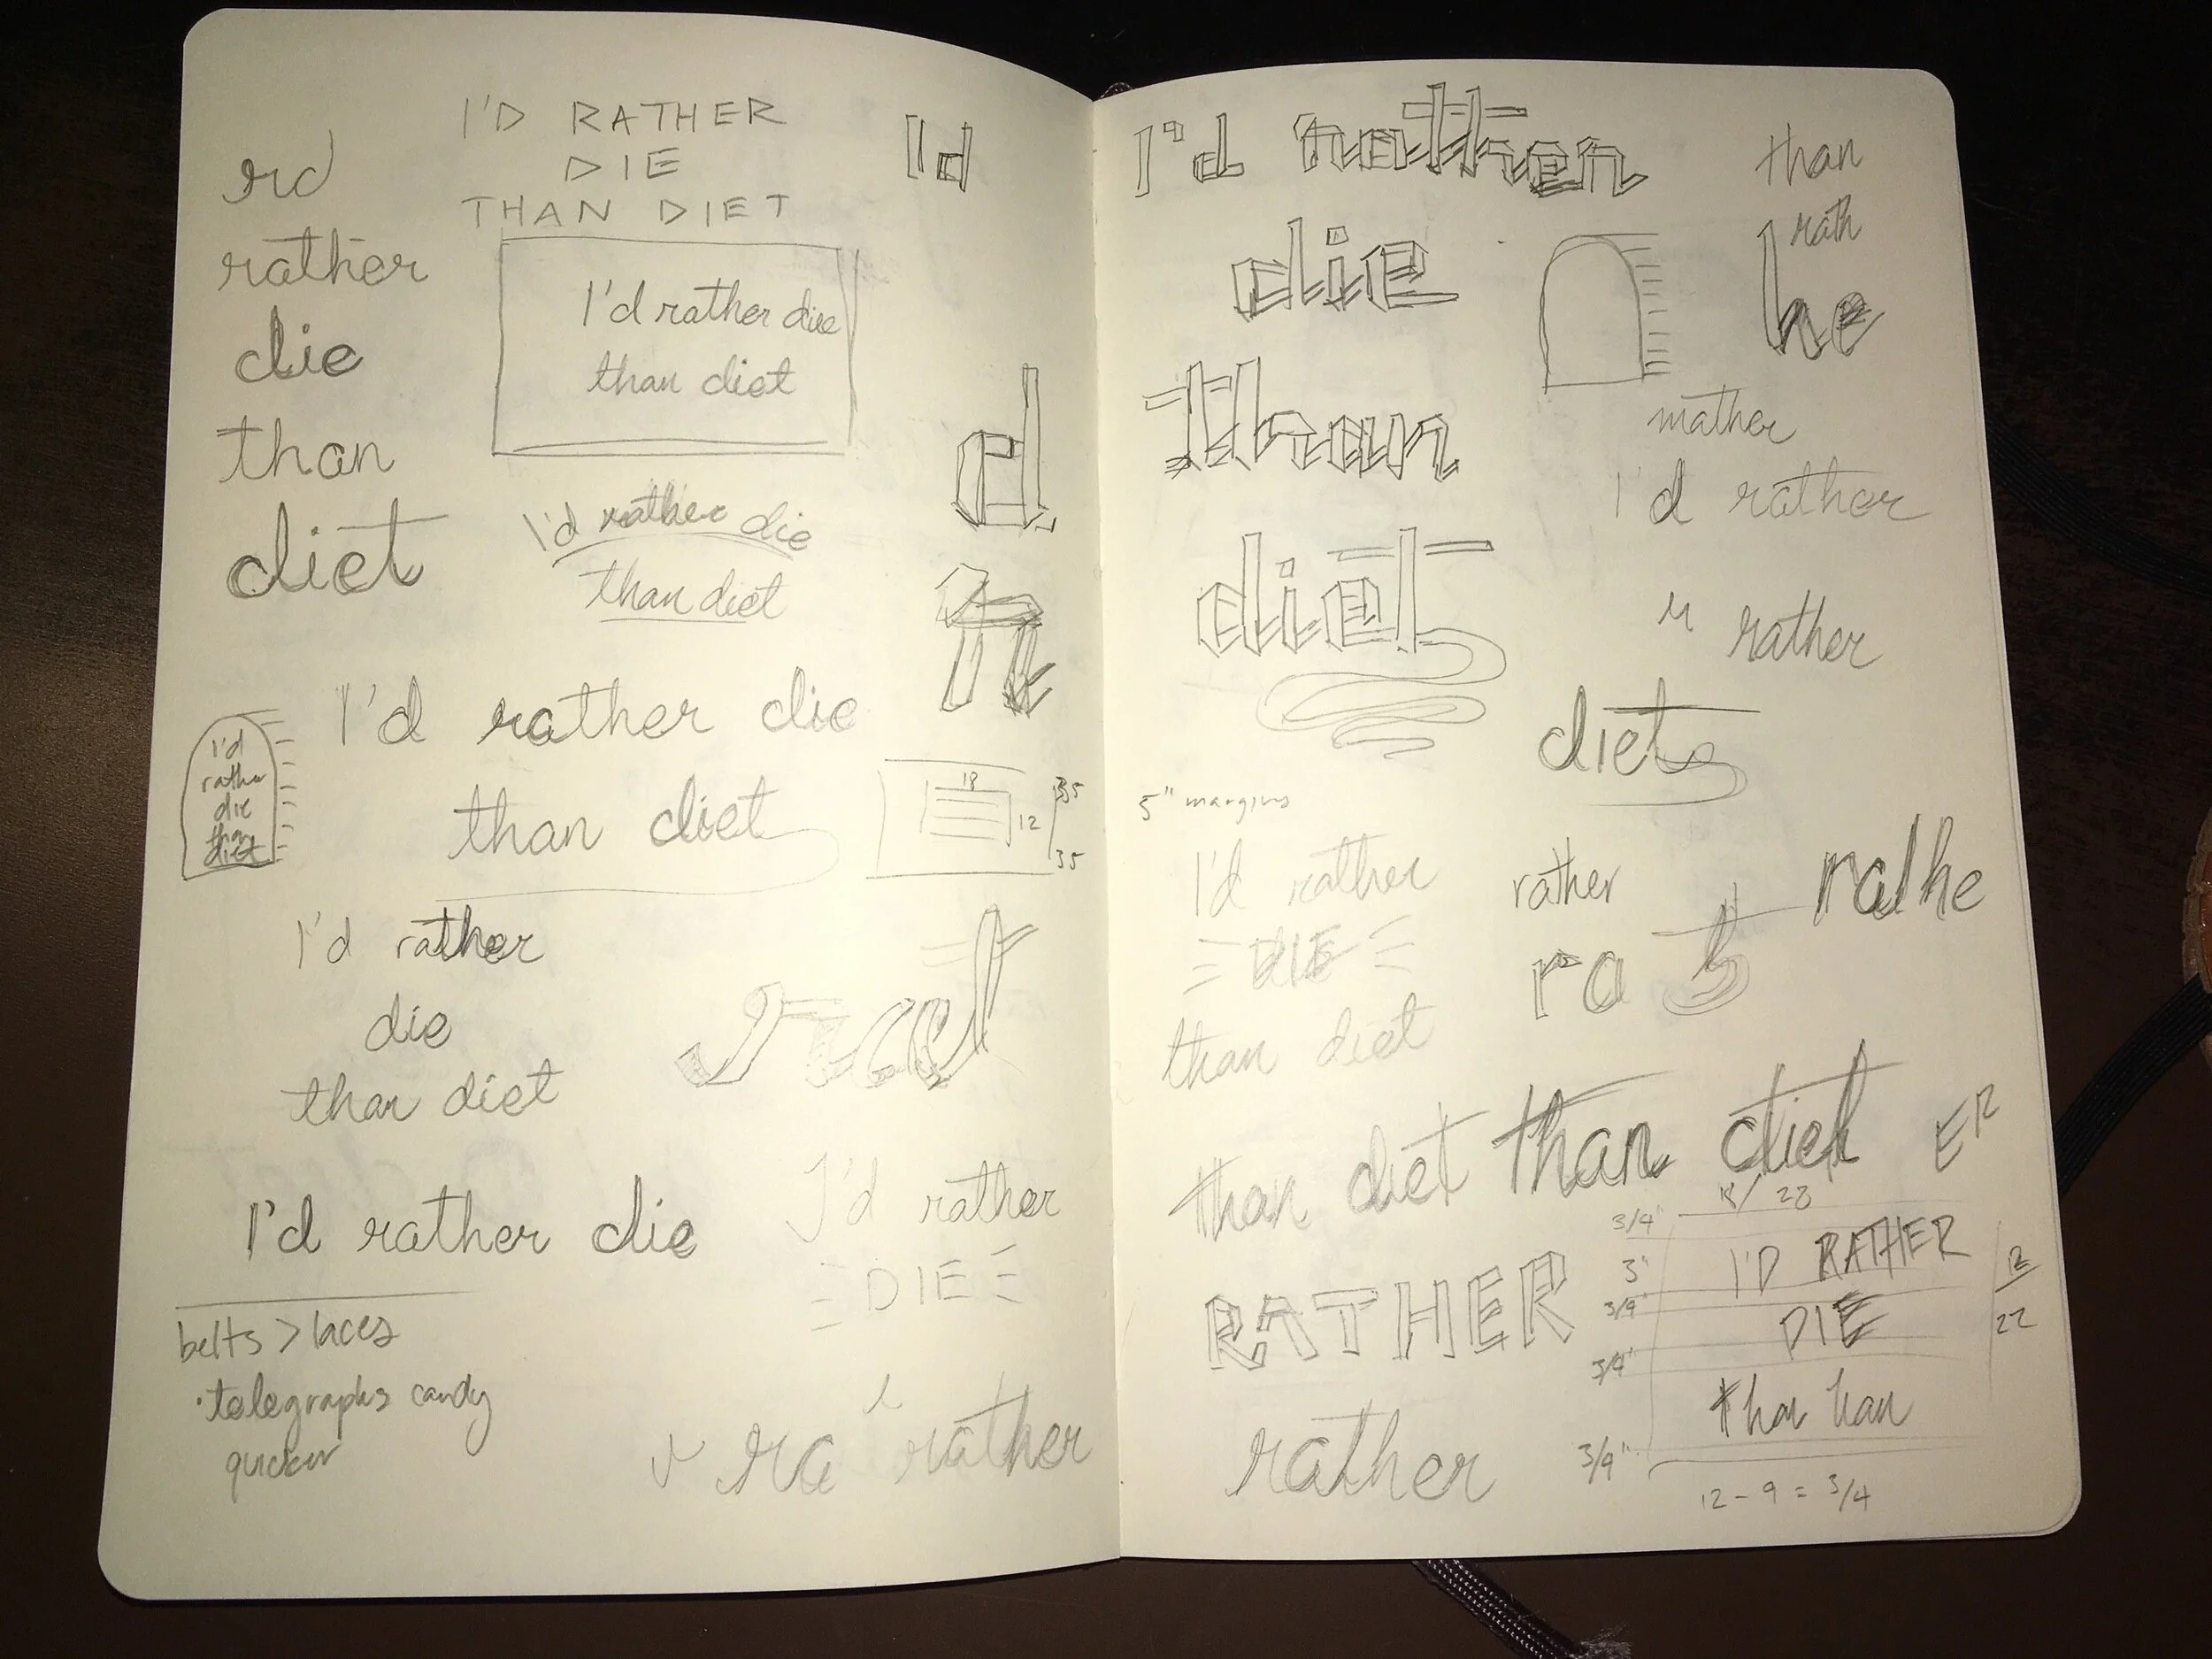 rd
rather
die
than
diet
I'D RATHER
DIE
THAN DIET
I'd rather die
than diet
I'd rather die
than diet
Id
d
r
I'd rather die
than diet
I'd
rather
die
than
diet
18
12
35
35
I'd rather
die
than diet
I'd rather die
I'd rather
DIE
belts > laces
· telegraphs candy
quicker
ra rather
I'd rather
die
than
diet
than
rath
he
mather
I'd rather
r rather
diet
5" margins
I'd rather
DIE
than diet
rather
rathe
ra t
than diet than diet
ER
RATHER
rather
3/4"
3"
3/4"
3/4"
3/4"
I'D RATHER
DIE
than han
12
22
12 - 9 = 3/4